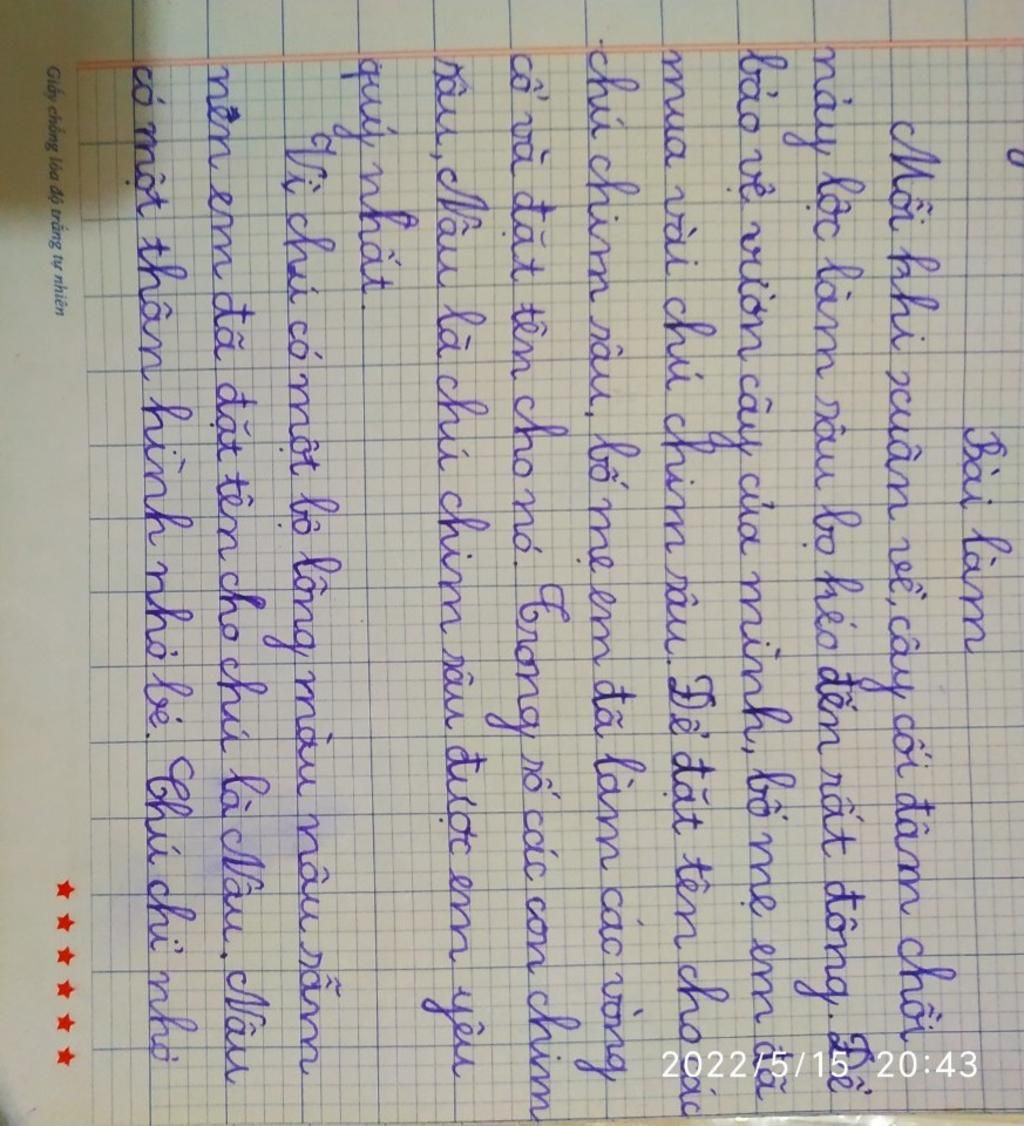 Bài làm
Mỗi khi xuân về, cây cối đâm chồi
nảy lộc làm sâu bọ kéo đến rất đông. Để
bảo vệ vườn cây của mình, bố mẹ em đã
mua vài chú chim sâu. Để đặt tên cho các
chú chim sâu, bố mẹ em đã làm các vòng
cổ và đặt tên cho nó. Trong số các con chim
sâu, Nâu là chú chim sâu được em yêu
quý nhất.
Vì chú có một bộ lông màu nâu sẫm
nên em đã đặt tên cho chú là Nâu. Nâu
có một thân hình nhỏ bé. Chú chỉ nhỏ
Giấy chống lóa độ trắng tự nhiên
2022/5/15 20:43